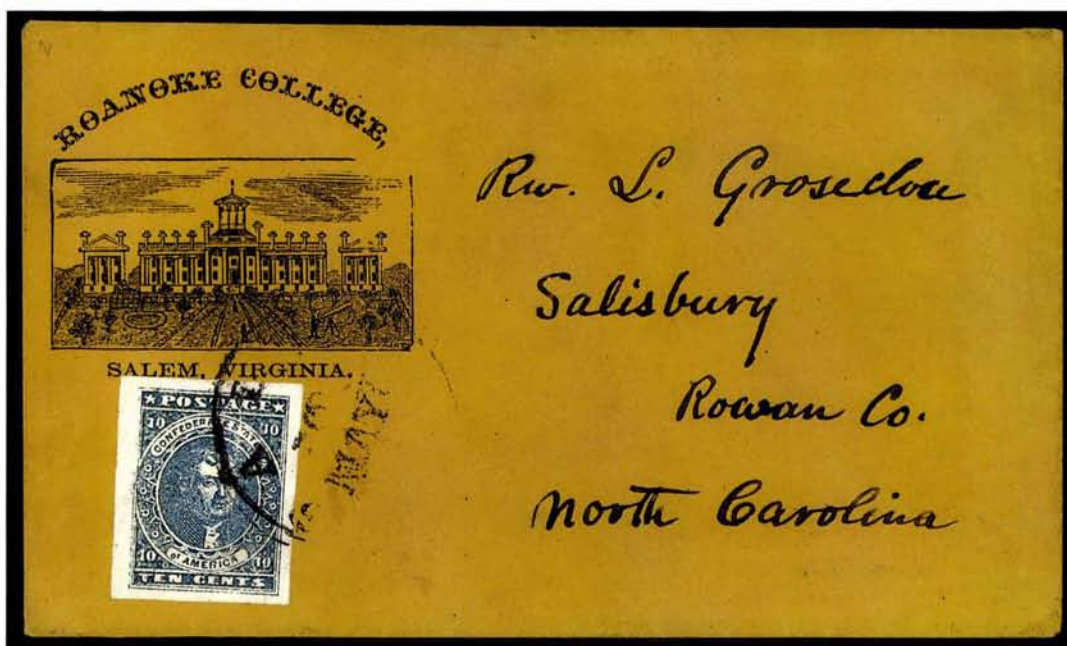 ROANOKE COLLEGE,
SALEM, VIRGINIA.
★ POSTAGE ★
10 10
CONFEDERATE STATES
of AMERICA
10 10
TEN CENTS
MAY
Rev. L. Groseclose
Salisbury
Rowan Co.
North Carolina